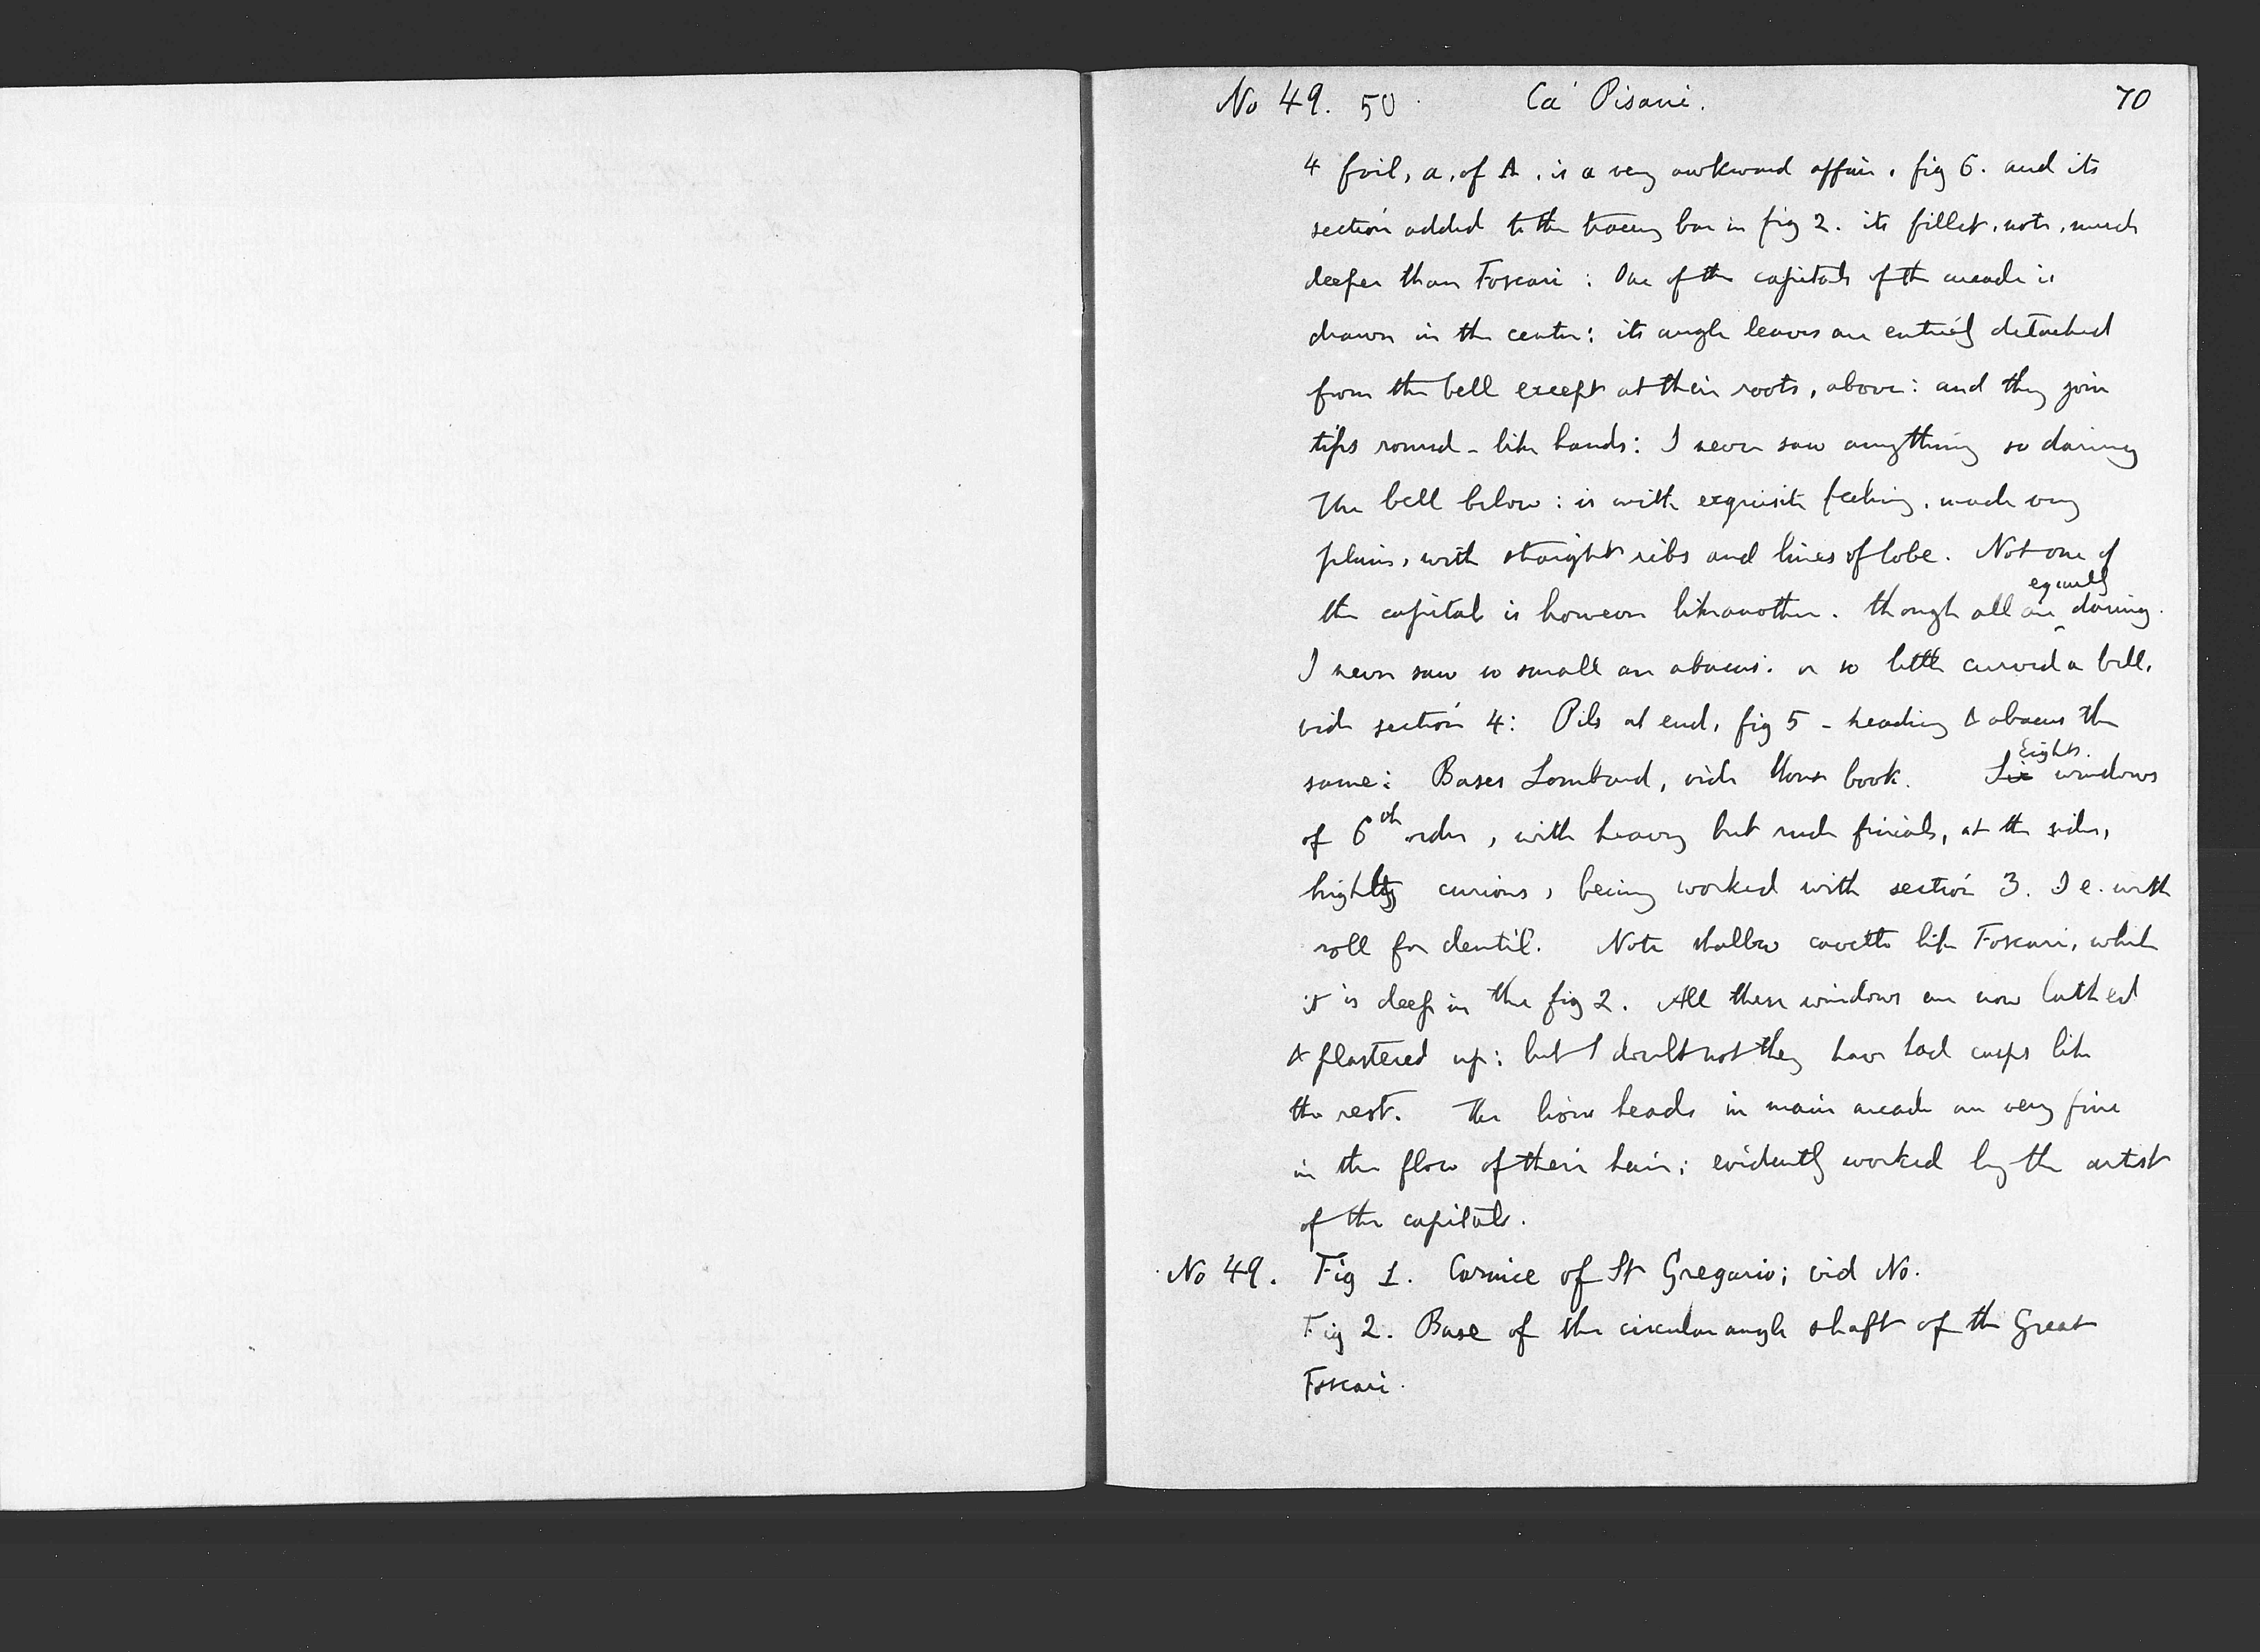 No 49. 50 Ca' Pisani. 70
4 foil, a, of A, is a very awkward affair, fig 6. and its
section added to the tracery bar in fig 2. its fillet, note, much
deeper than Foscari: One of the capitals of the arcade is
drawn in the center: its angle leaves are entirely detached
from the bell except at their roots, above: and they join
tips round - like hands: I never saw anything so daring
The bell below: is with exquisite feeling, made very
plain, with straight ribs and lines of lobe. Not one of
equally
the capitals is however like another. though all are daring.
I never saw so small an abacus: or so little curved a bell,
vide section 4: Pils at end, fig 5 - heading & abacus the
Eight
same: Bases Lombard, vide House book. Six windows
of 6th order, with heavy but rude finials, at the sides,
highly curious, being worked with section 3. I e. with
roll for dentil. Note shallow cavetto like Foscari, while
it is deep in the fig 2. All these windows are now lathed
& plastered up: but I doubt not they have had cusps like
the rest. The lions heads in main arcade are very fine
in the flow of their hair; evidently worked by the artist
of the capitals.
No 49. Fig 1. Cornice of St Gregorio; vid No.
Fig 2. Base of the circular angle shaft of the Great
Foscari.